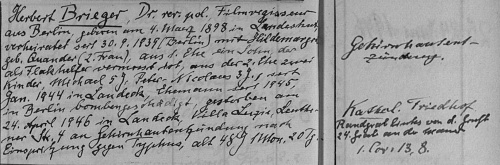 Herbert Brieger, Dr. rer. pol. Filmregisseur
aus Berlin, geboren am 4. März 1898 in Landeshut,
verheiratet seit 30.9.1939 (Berlin) mit Hildemargret
geb. (2. Frau), aus 1. Ehe ein Sohn, der
als Flakhelfer vermisst, aus der 2. Ehe zwei
Kinder, Michael 5 J., Peter-Nicolaus 3 J., seit
Jan. 1944 in Landeck, Ehemann seit 1945,
in Berlin bombengeschädigt, gestorben am
24. April 1946 in Landeck, Villa Luzie,
Str. 4 an Gehirnhautentzündung nach
Einspritzung gegen Typhus, alt 48 J 1 Mon. 20 Tg.
Gehirnhautent-
zündung.
Kathol. Friedhof
links von d. Gruft
24. an der Mauer
1. Cor. 13, 8.